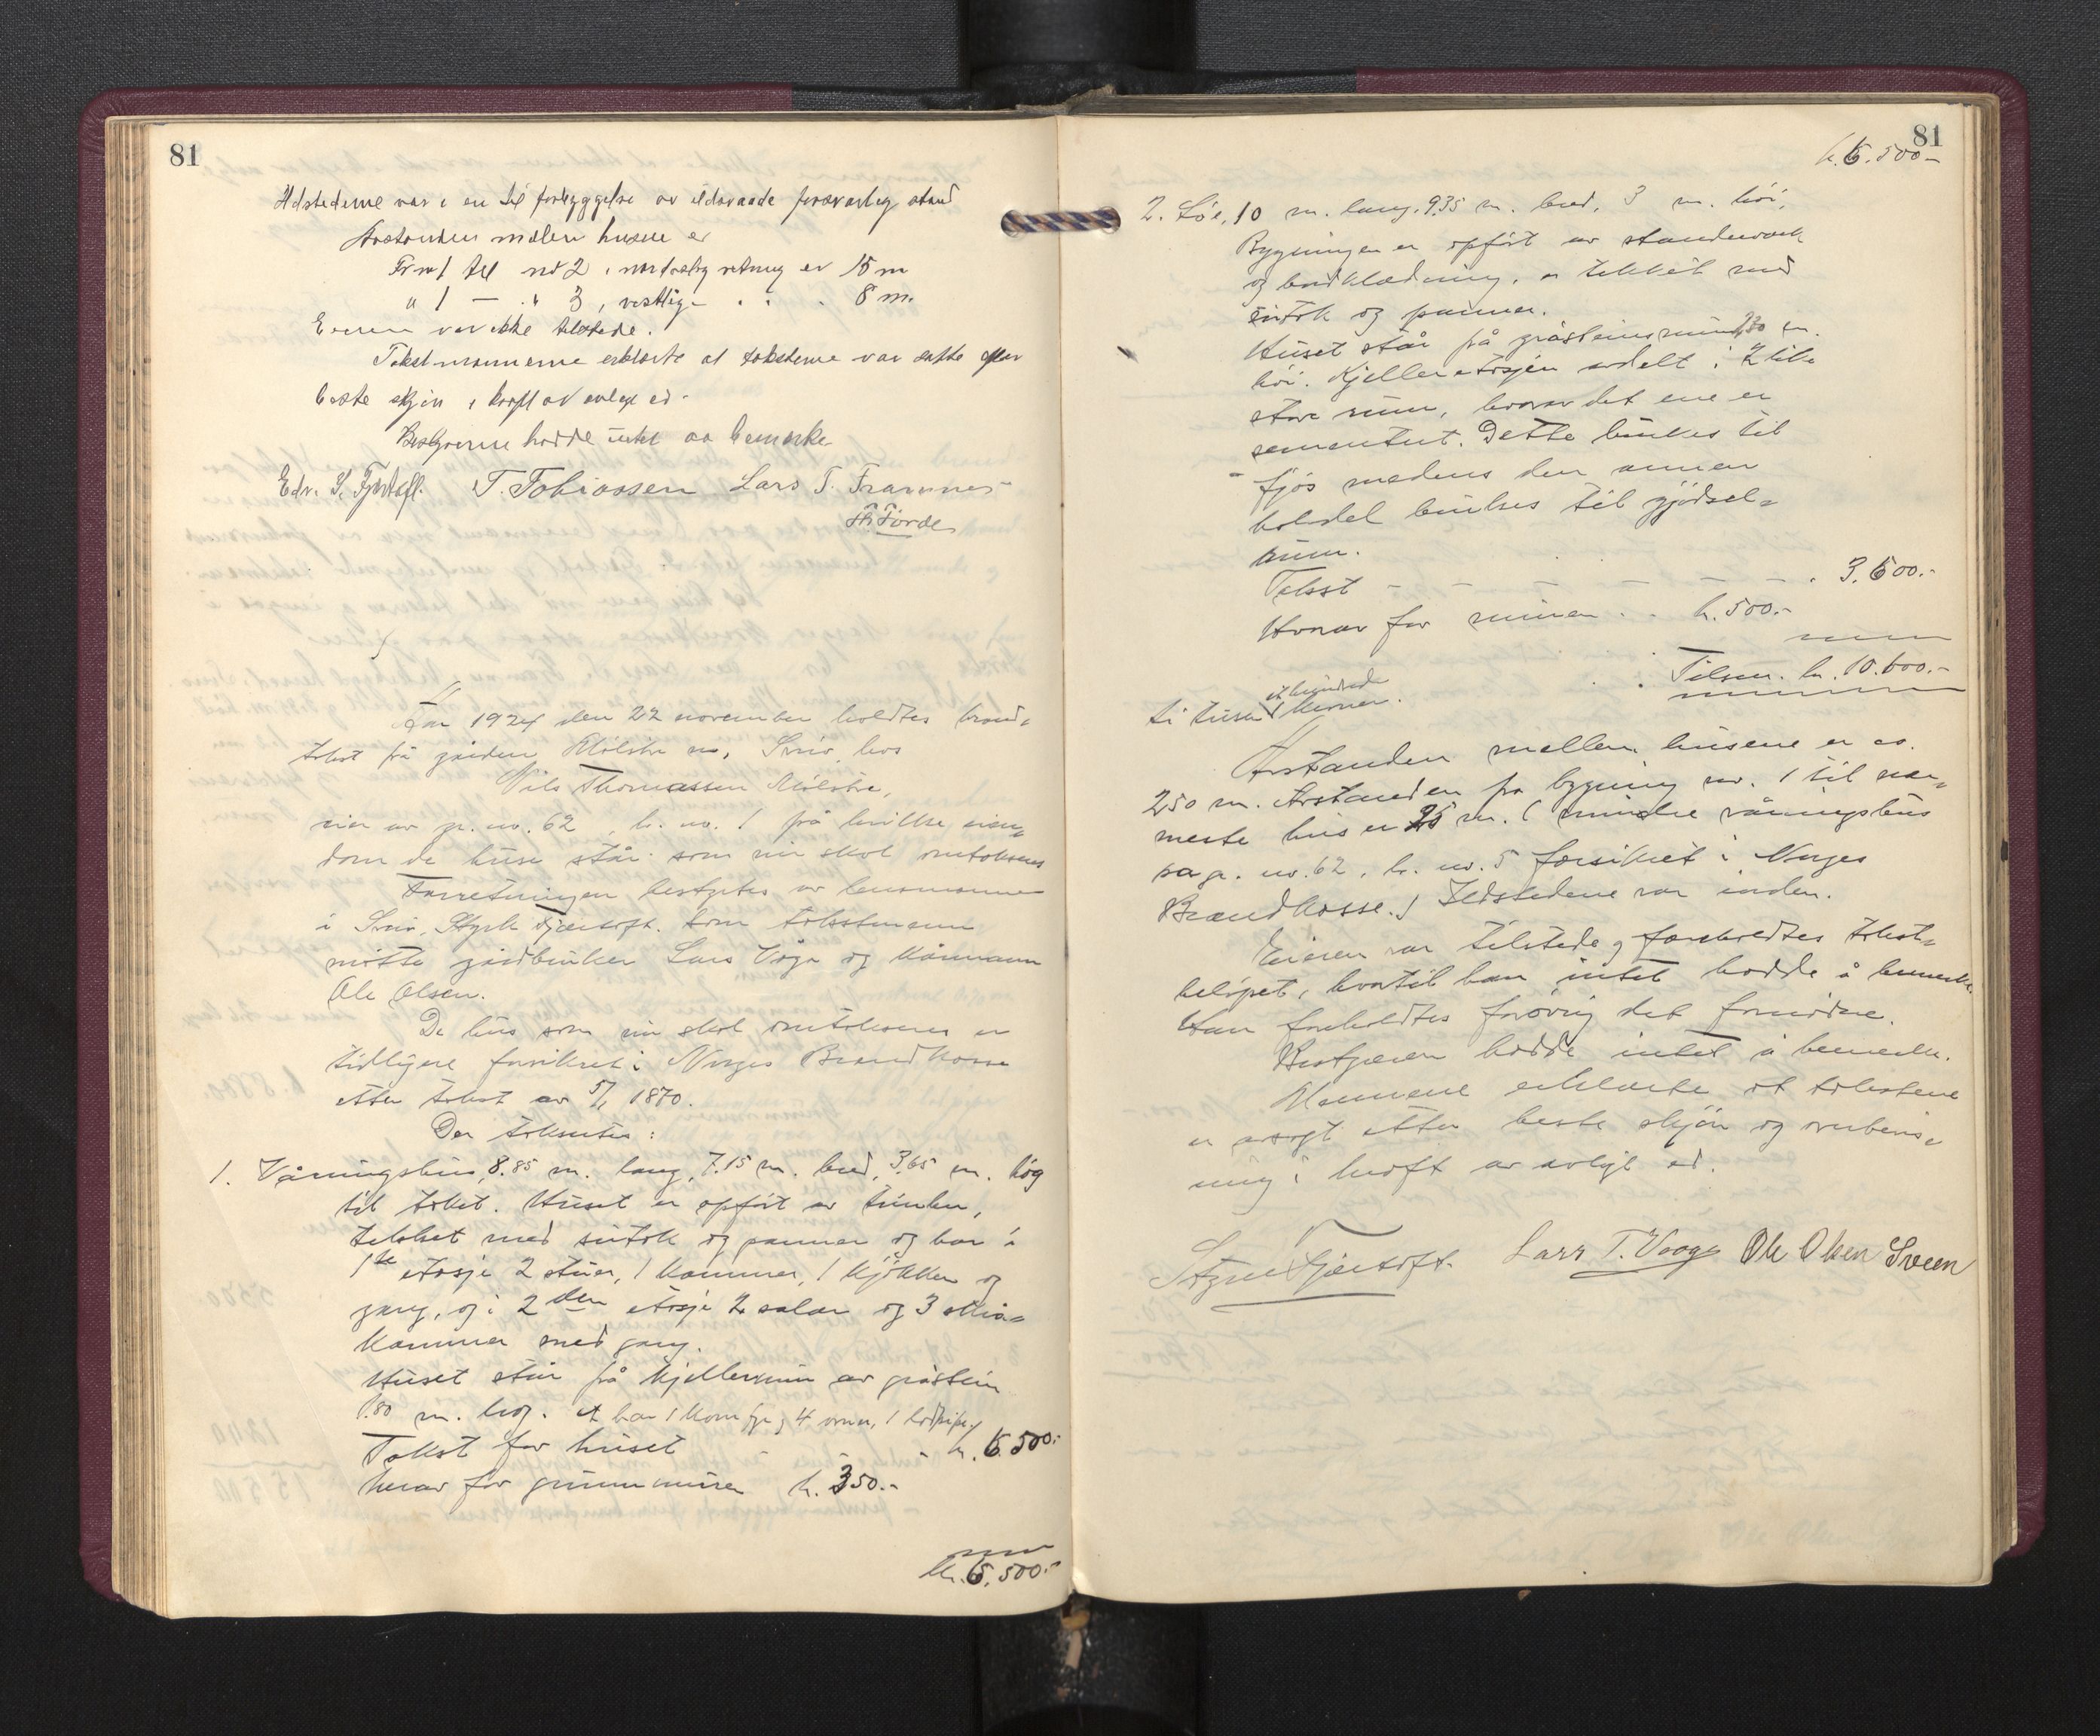 81
Ildstederne var i en til forbyggelse av ildsvaade forsvarlig stand
Avstanden mellem husene er
Fr nr 1 til nr 2 i nordostlig retning er 15 m
" 1 — " 3, vestlig " " " 8 m.
Eieren var ikke tilstede.
Takstmænnerne erklærte at taksterne var satte efter
beste skjön i kraft av avlagt ed.
Bestyreren hadde intet aa bemerke
Edv. S. Fjørtoft. T. Tobiassen Lars T. Framnes
Th. Förde
År 1924 den 22 november holdtes brand-
takst på gården Mölstre i Sveio hos
Nils Thomassen Mölstre,
eier av gr. nr. 62, br. nr. 1 på hvilke eien-
dom de huse står som nu skal omtakseres
Forretningen bestyrtes av lensmannen
i Sveio, Styrk Fjærtoft. Som takstmenn
mötte gårdbruker Lars Våge og kårmann
Ole Olsen.
De hus som nu skal omtakseres er
tidligere forsikret i Norges Brandkasse
etter takst av 5/1 1870.
Der takseres:
1. Våningshus, 8.85 m. lang, 7.15 m. bred, 3,65 m. høg
til taket. Huset er opfört av tömmer,
tekket med sutak og panner og har i
1ste etasje 2 stuer, 1 kammer, 1 kjökken og
gang, og i 2den etasje 2 salar og 3 små-
kammer med gang.
Huset står på kjellermur av gråstein
1.80 m. høg. Det har 1 komfyr, 4 ovner, 1 brandpipe
Takst for huset - - - kr. 6.500.-
Herav for grunnmuren kr. 350.-
Kr. 6.500.-
81
kr. 6.500-
2. Löe, 10 m. lang, 9.35 m. bred, 3 m. höi,
Bygningen er opfört av stenderverk
og bordklædning, er tekket med
sutak og panner.
Huset står på gråsteinsmur, 2.30 m.
höi. Kjelleretasjen avdelt i 2 like
store rum, hvorav det ene er
sementert. Dette brukes til
fjös medens den annen
halvdel brukes til gjödsel-
rum.
Takst - - - - - - 3.600.-
Herav for muren . . kr. 500.-
Tilsm. kr. 10.100.-
ti tusen et hundrede kroner.
Avstanden mellem husene er ca.
250 m. Avstanden fra bygning nr. 1 til nær-
meste hus er 25 m. (mindre våningshus
på gr. nr. 62, br. nr. 5 forsikret i Norges
Brandkasse.) Ildstedene var i orden.
Eieren var tilstede og foreholdtes takst-
belöpet, hvortil han intet hadde å bemerke.
Han foreholdtes forövrig det fornödne.
Bestyreren hadde intet å bemerke.
Mennene erklærte at takstene
er avsagt etter beste skjön og overbevis-
ning i kraft av avlagt ed.
Styrk Fjærtoft. Lars T. Vaage Ole Olsen Sveen